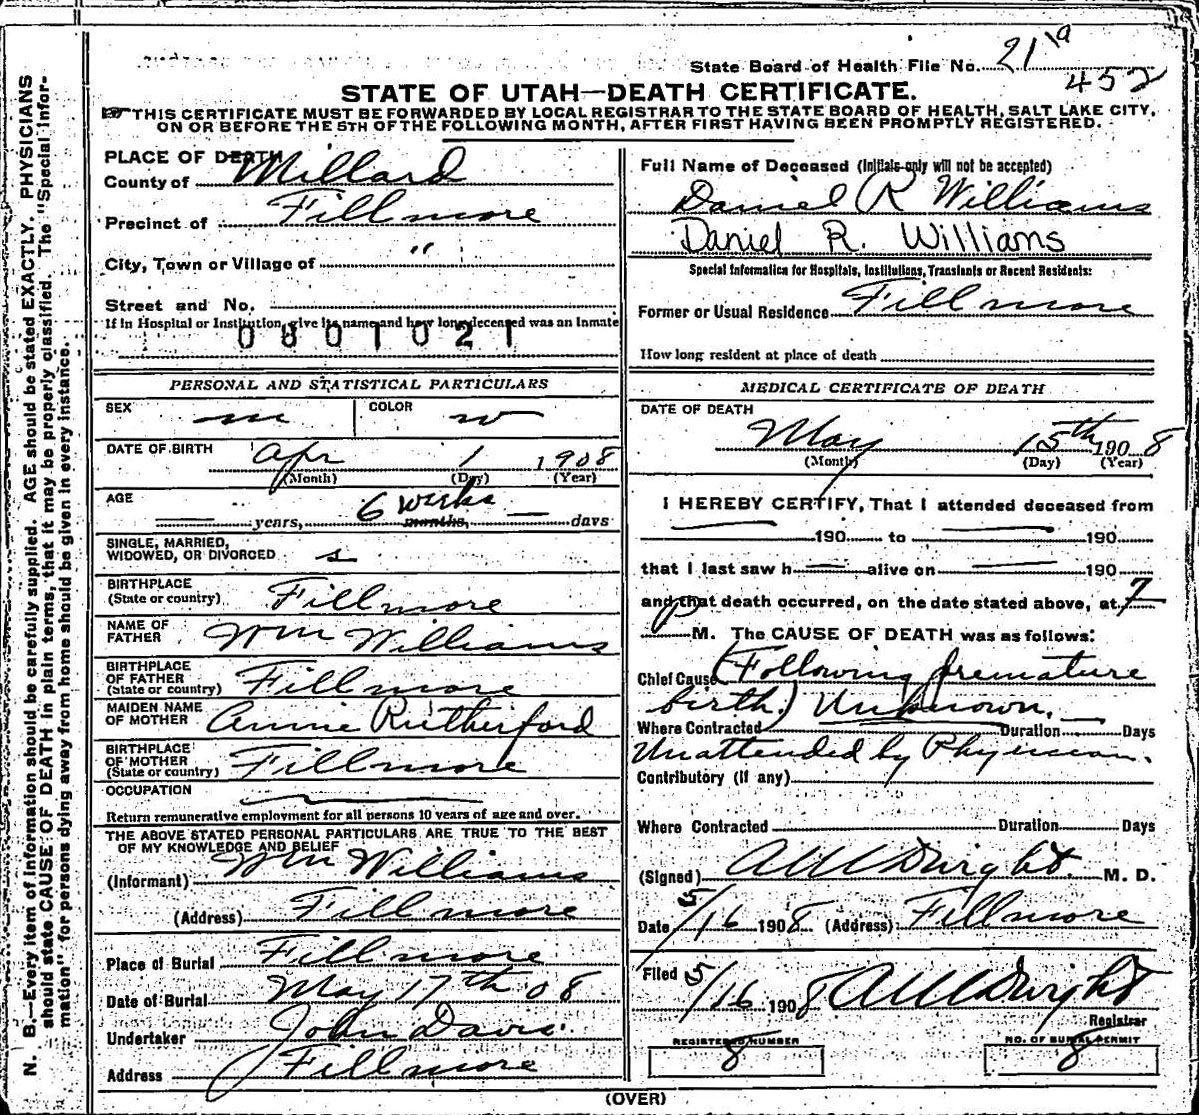 State Board of Health File No. 21 a
452
STATE OF UTAH—DEATH CERTIFICATE.
☞ THIS CERTIFICATE MUST BE FORWARDED BY LOCAL REGISTRAR TO THE STATE BOARD OF HEALTH, SALT LAKE CITY,
ON OR BEFORE THE 5TH OF THE FOLLOWING MONTH, AFTER FIRST HAVING BEEN PROMPTLY REGISTERED.
N. B.—Every item of information should be carefully supplied. AGE should be stated EXACTLY. PHYSICIANS
should state CAUSE OF DEATH in plain terms, that it may be properly classified. The "Special Infor-
mation" for persons dying away from home should be given in every instance.
PLACE OF DEATH
County of Millard
Precinct of Fillmore
City, Town or Village of "
Street and No.
If in Hospital or Institution, give its name and how long deceased was an Inmate
0801021
PERSONAL AND STATISTICAL PARTICULARS
SEX m COLOR w
DATE OF BIRTH Apr 1 1908
(Month) (Day) (Year)
AGE
— years, 6 weeks months, — days
SINGLE, MARRIED,
WIDOWED, OR DIVORCED s
BIRTHPLACE
(State or country) Fillmore
NAME OF
FATHER Wm Williams
BIRTHPLACE
OF FATHER
(State or country) Fillmore
MAIDEN NAME
OF MOTHER Annie Rutherford
BIRTHPLACE
OF MOTHER
(State or country) Fillmore
OCCUPATION
Return remunerative employment for all persons 10 years of age and over.
THE ABOVE STATED PERSONAL PARTICULARS ARE TRUE TO THE BEST
OF MY KNOWLEDGE AND BELIEF
(Informant) Wm Williams
(Address) Fillmore
Place of Burial Fillmore
Date of Burial May 17th 08
Undertaker John Davis
Address Fillmore
Full Name of Deceased (Initials only will not be accepted)
Daniel R Williams
Daniel R. Williams
Special Information for Hospitals, Institutions, Transients or Recent Residents:
Former or Usual Residence Fillmore
How long resident at place of death
MEDICAL CERTIFICATE OF DEATH
DATE OF DEATH
May 15th 1908
(Month) (Day) (Year)
I HEREBY CERTIFY, That I attended deceased from
— 190 to — 190
that I last saw h— alive on — 190
and that death occurred, on the date stated above, at 7
P M. The CAUSE OF DEATH was as follows:
Chief Cause (Following premature
birth.) Unknown.
Where Contracted Duration — Days
Unattended by Physician.
Contributory (if any)
Where Contracted Duration Days
(Signed) Dwight M. D.
Date 5/16 1908 (Address) Fillmore
Filed 5/16 1908 Dwight
Registrar
REGISTERED NUMBER
8
NO. OF BURIAL PERMIT
8
(OVER)